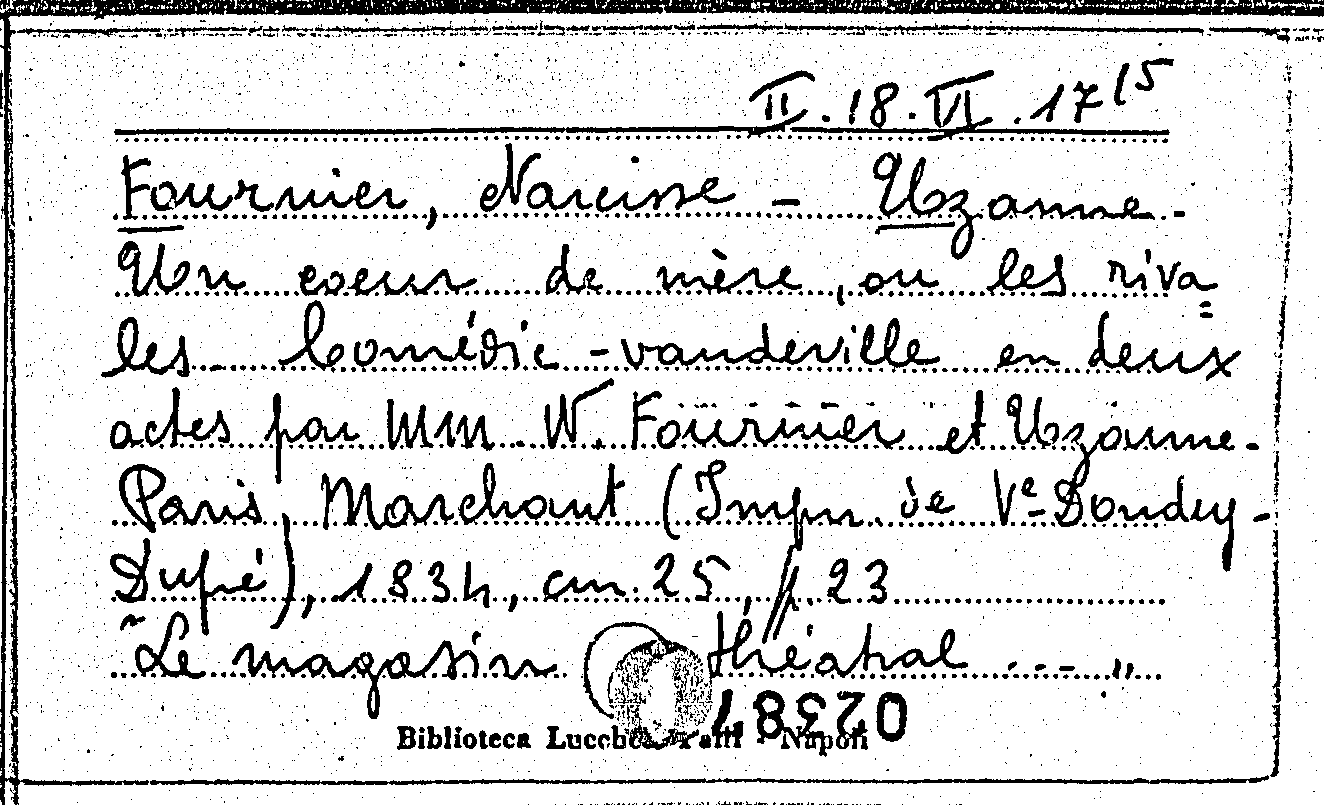 II.18.VI.17¹⁵
Fournier, Narcisse - Uzanne.-
Un coeur de mère, ou les riva=
les. Comédie-vaudeville en deux
actes par MM. N. Fournier et Uzanne.-
Paris, Marchant (Impr. de Vᵉ Dondey-
Dupé), 1834, cm. 25, p. 23
"Le magasin théatral ... "
02387
Biblioteca Lucchesi Palli - Napoli